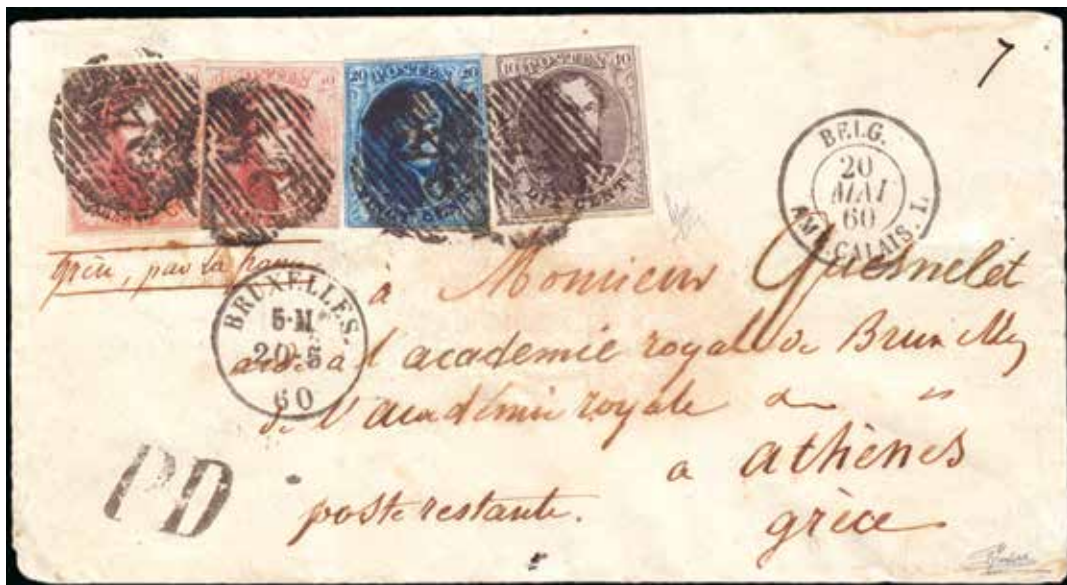 7
20 POSTES 20
VINGT CENTS
10 POSTES 10
DIX CENTS
BELG.
20
MAI
60
CALAIS. I.
Grèce, par la france
BRUXELLES.
5-M
20-5
60
à Monsieur Quesnelet
à l'academie royale de Bruxelles
de l'academie royale
a athènes
poste restante.
grèce
PD